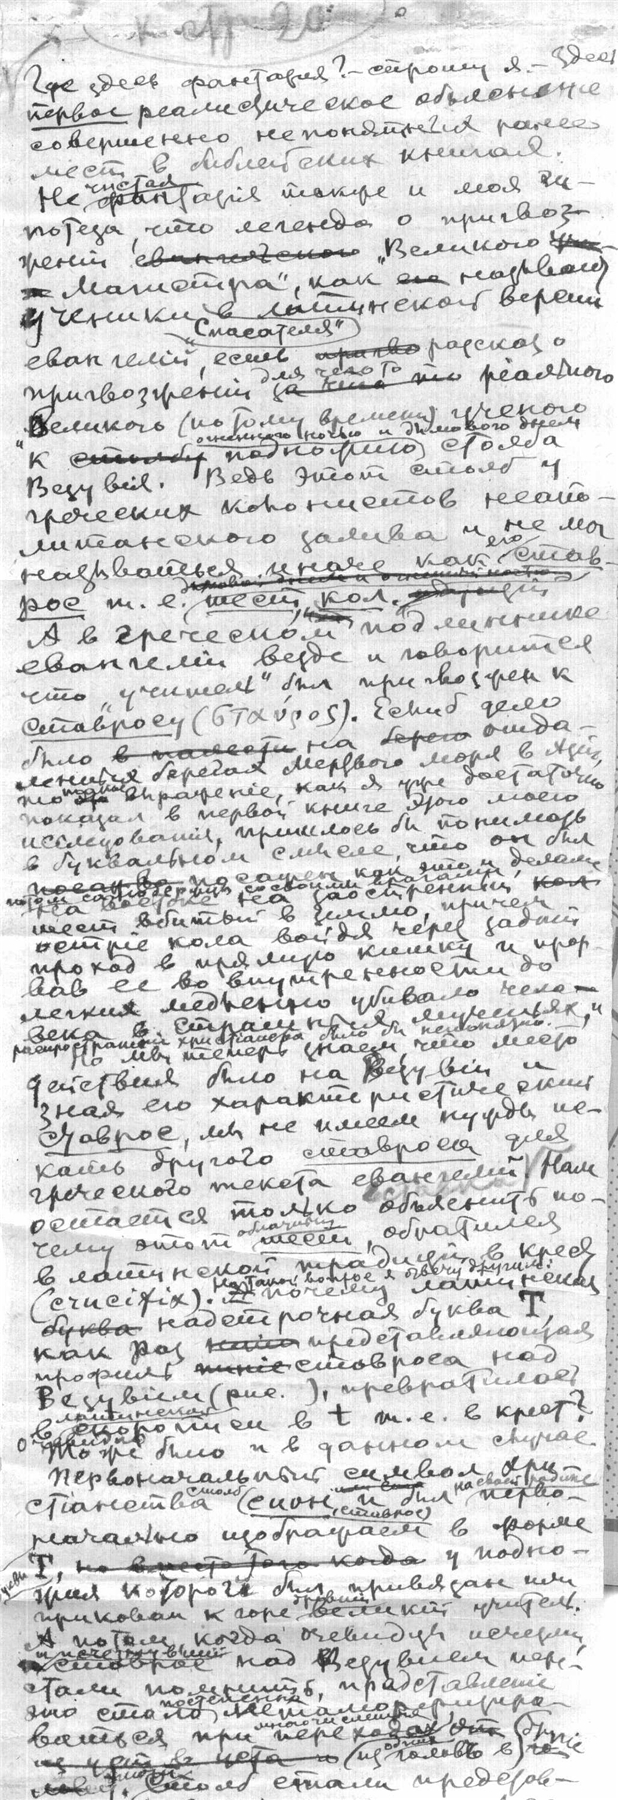 к стр 20
Где здесь фантазия? – спрошу я. – Здесь
первое реалистическое объяснение
совершенно непонятных ранее
мест в библейских книгах.
Не чистая фантазія также и моя ги-
потеза, что легенда о пригвоз-
жении евангельского "Великого
Магистра", как его называют
ученики в латинской версии
"Спасателя"
евангелий, есть рассказ о
пригвозжений для чего то реального
Великого (по тому времени) ученого
огненного ночью и дымового днем
"к подножию столба
Везувія. Ведь этот столб у
греческих колонистов неапо-
литанского залива и не мог
называться иначе как его став-
рос т. е. шест, кол.
А в греческом подлиннике
евангелій везде и говорится
что "учитель" был пригвожден к
ставросу (σταύρος). Если б дело
было на отда-
ленных берегах Мертвого моря в Азии,
то такое выражение, как я уже достаточно
показал в первой книге этого моего
исследования, пришлось бы понимать
в буквальном смысле, что он был
посажен как это и делали
на востоке на заостренный кол
шест вбитый в землю, причем
острие кола войдя через задний
проход в прямую кишку и прор-
вав ее во внутренности до
легких медленно убивало чело-
века в страшных мучениях,"
распространения христианства было бы непонятно.
Но мы теперь знаем что место
действия было на Везувіи и
зная его характеристический
ставрос, мы не имеем нужды ис-
кать другого ставроса для
греческого текста евангелий. Нам
остается только объяснить по-
чему этот шест, обратился
в латинской традиции в крест
(crucifix). На такой вопрос я отвечу другим:
почему латинская
буква надстрочная буква T,
как раз представляющая
профиль ставроса над
Везувіем (рис. ), превратилась
в латинской скорописи в t т. е. в крест?
То же было и в данном случае
Первоначальный символ хри-
стианства (столб, ставрос) на своей родине
и был перво-
начально изображаем в форме
T, но вместо того когда у подно-
жия которого был привязан или
прикован к горе древний великий учитель.
А потом когда очевидцы исчезли
и исчезнувший
ставрос над Везувием пере-
стали помнить, представление
это стало постепенно метаморфизиро-
ваться при переходах
из одних голов в другие
Столб стали представ-